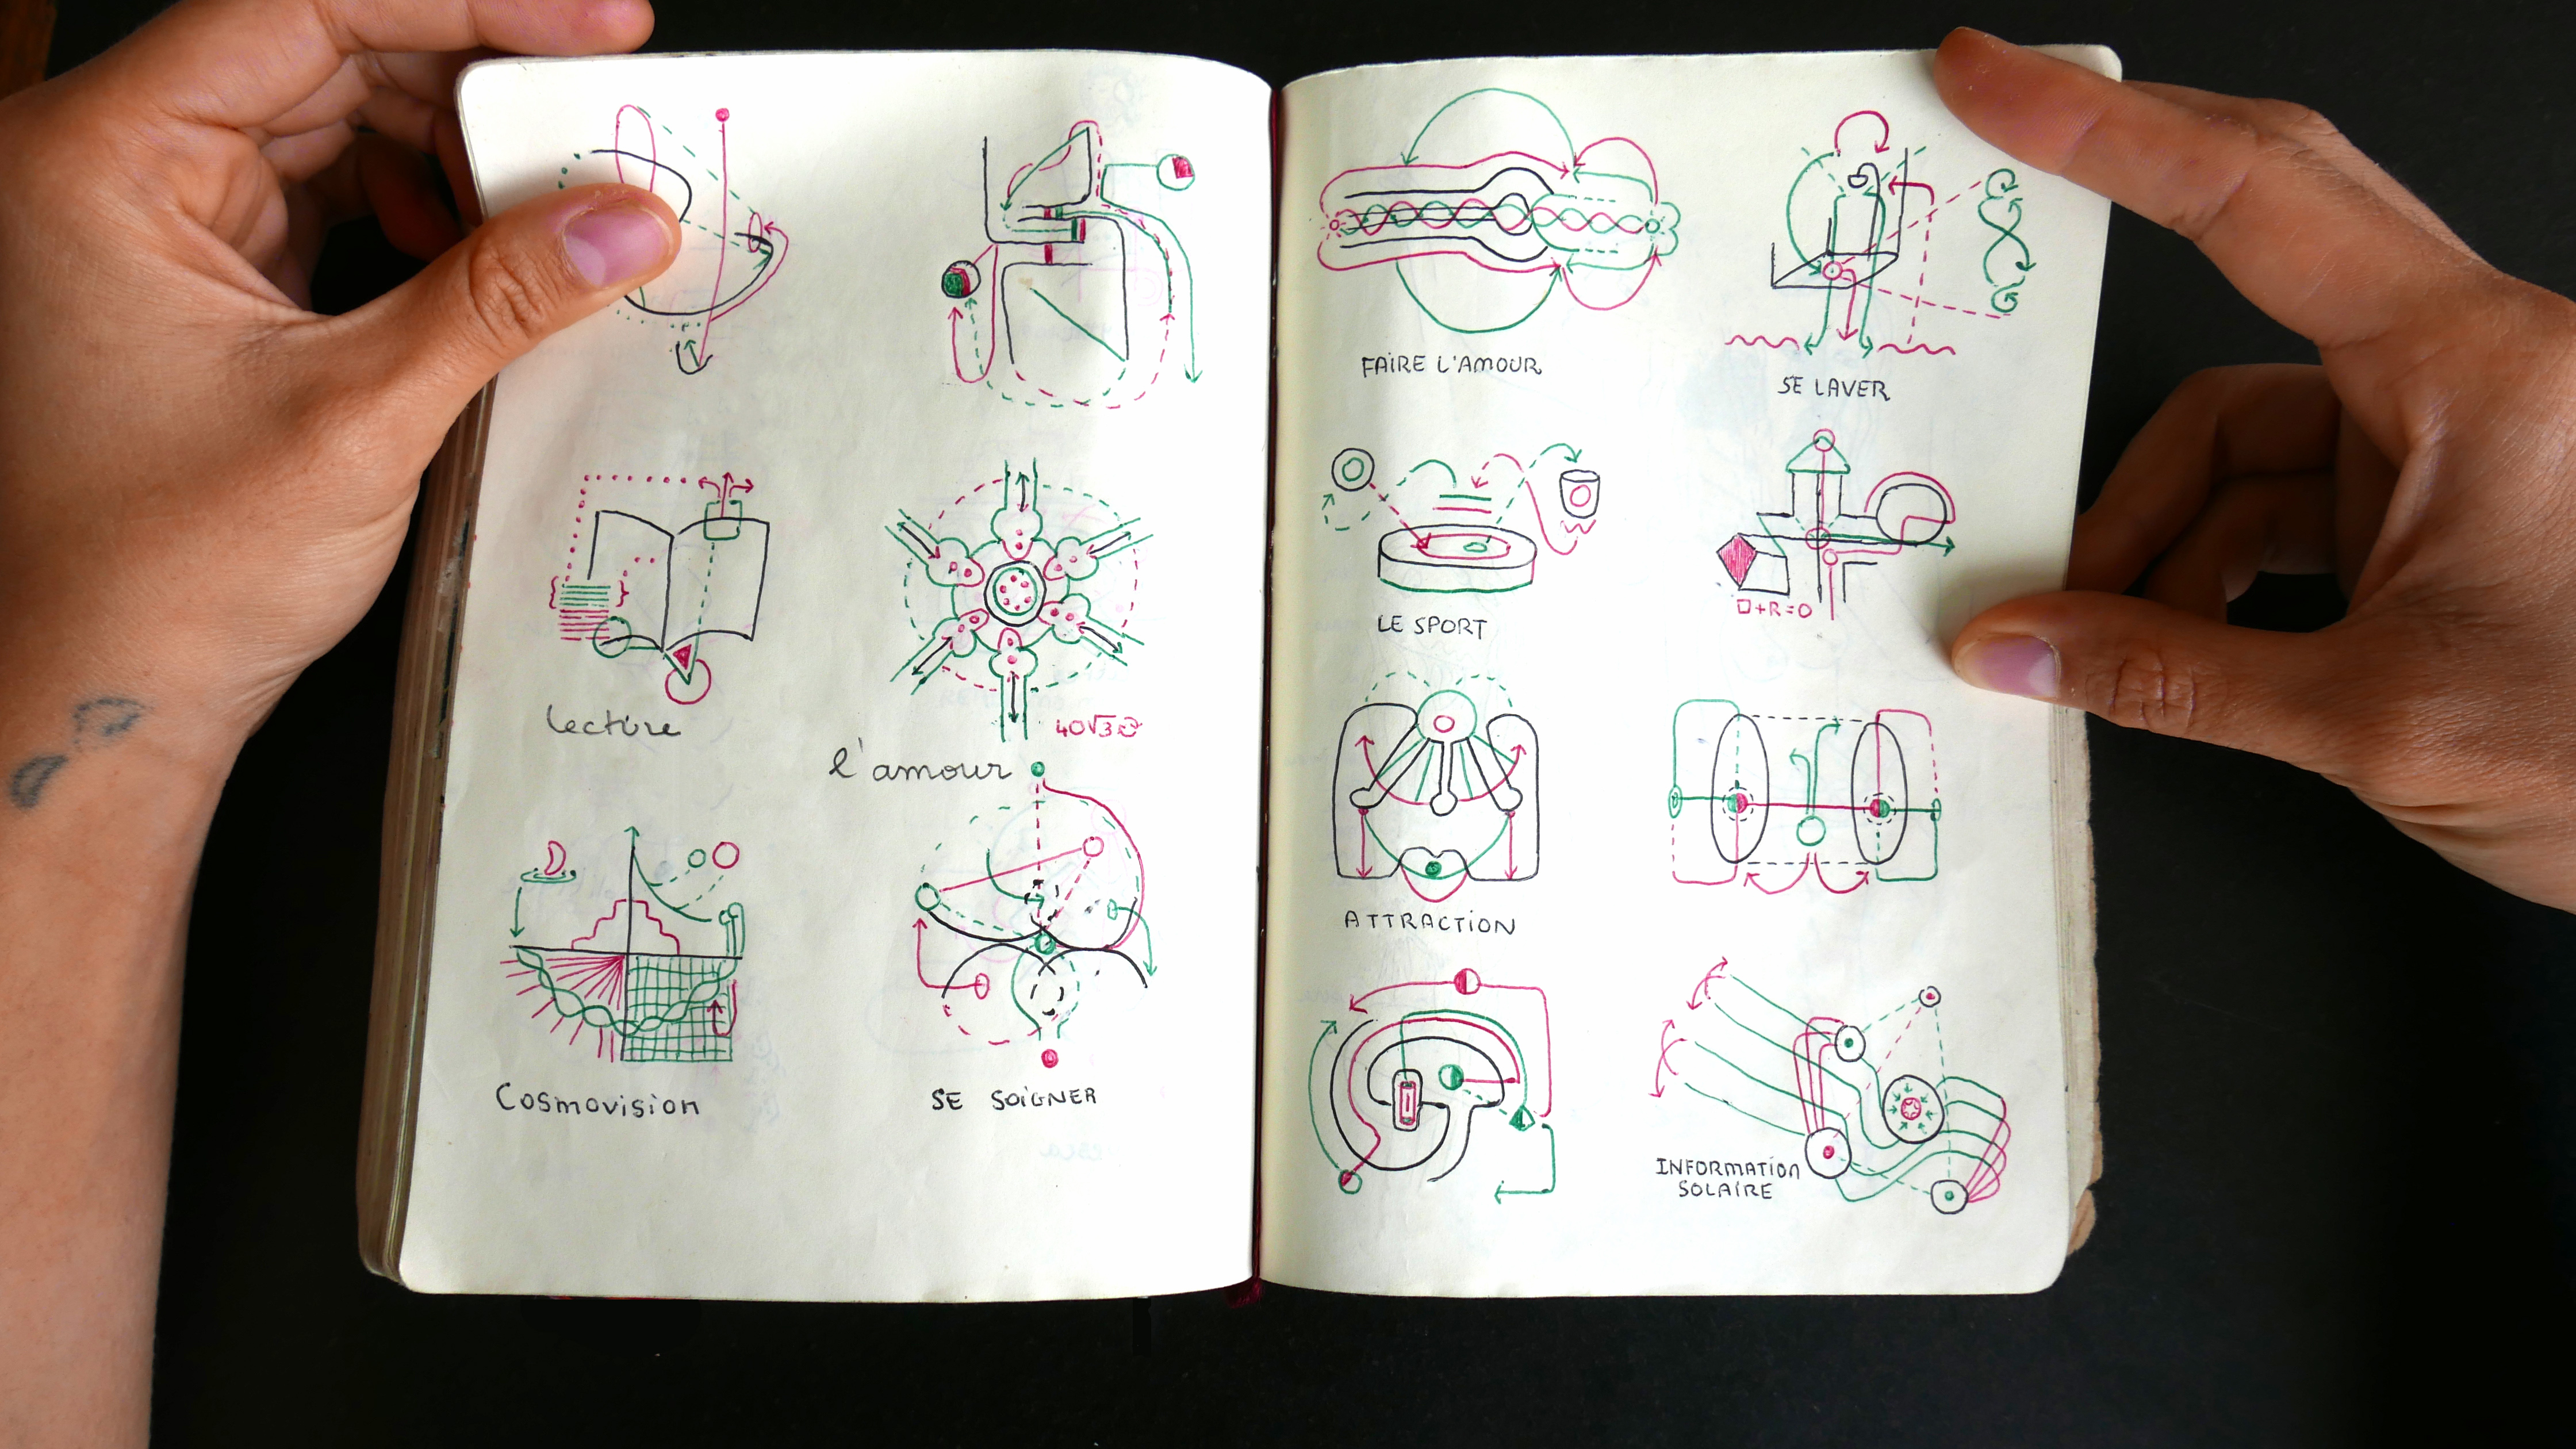 lecture
40√3
l'amour
Cosmovision
SE SOIGNER
FAIRE L'AMOUR
SE LAVER
LE SPORT
□+R=O
ATTRACTION
INFORMATION
SOLAIRE